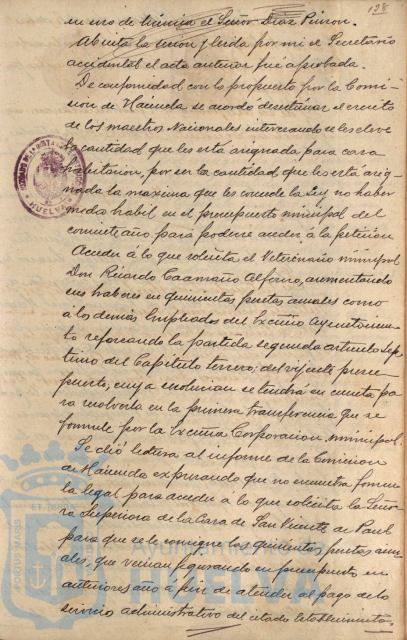 128
en uso de licencia el Señor Diaz Pinzon.
Abierta la sesion y leida por mi el Secretario
accidental el acta anterior fué aprobada.
De conformidad con lo propuesto por la Comi-
sion de Hacienda se acordo desestimar el escrito
de los maestros Nacionales interesando se les eleve
la cantidad que les está asignada para casa
habitacion, por ser la cantidad que les está asig-
nada la maxima que les concede la Ley y no haber
medio habil en el presupuesto municipal del
corriente año para poderse acceder á la peticion
Acceder á lo que solicita el Veterinario municipal
Don Ricardo Caamaño Alfonso, aumentando
sus haberes en quinientas pesetas anuales como
á los demás Empleados del Excmo Ayuntamien-
to reforzando la partida segunda articulo Sep-
timo del Capitulo tercero, del vigente presu-
puesto, cuya resolucion se tendrá en cuenta pa-
ra resolverla en la primera transferencia que se
formule por la Excma Corporacion municipal.
Se dió lectura al informe de la Comision
de Hacienda expresando que no encuentra formu-
la legal para acceder á lo que solicita la Seño-
ra Superiora de la Casa de San Vicente de Paul
para que se le consigne las quinientas pesetas anua-
les, que venian figurando en presupuesto en
anteriores año á fin de atender al pago de lo
servicio administrativo del citado establecimiento.
HUELVA
PORTUS MARIS
ET TERRAE
Ayuntamiento de
HUELVA